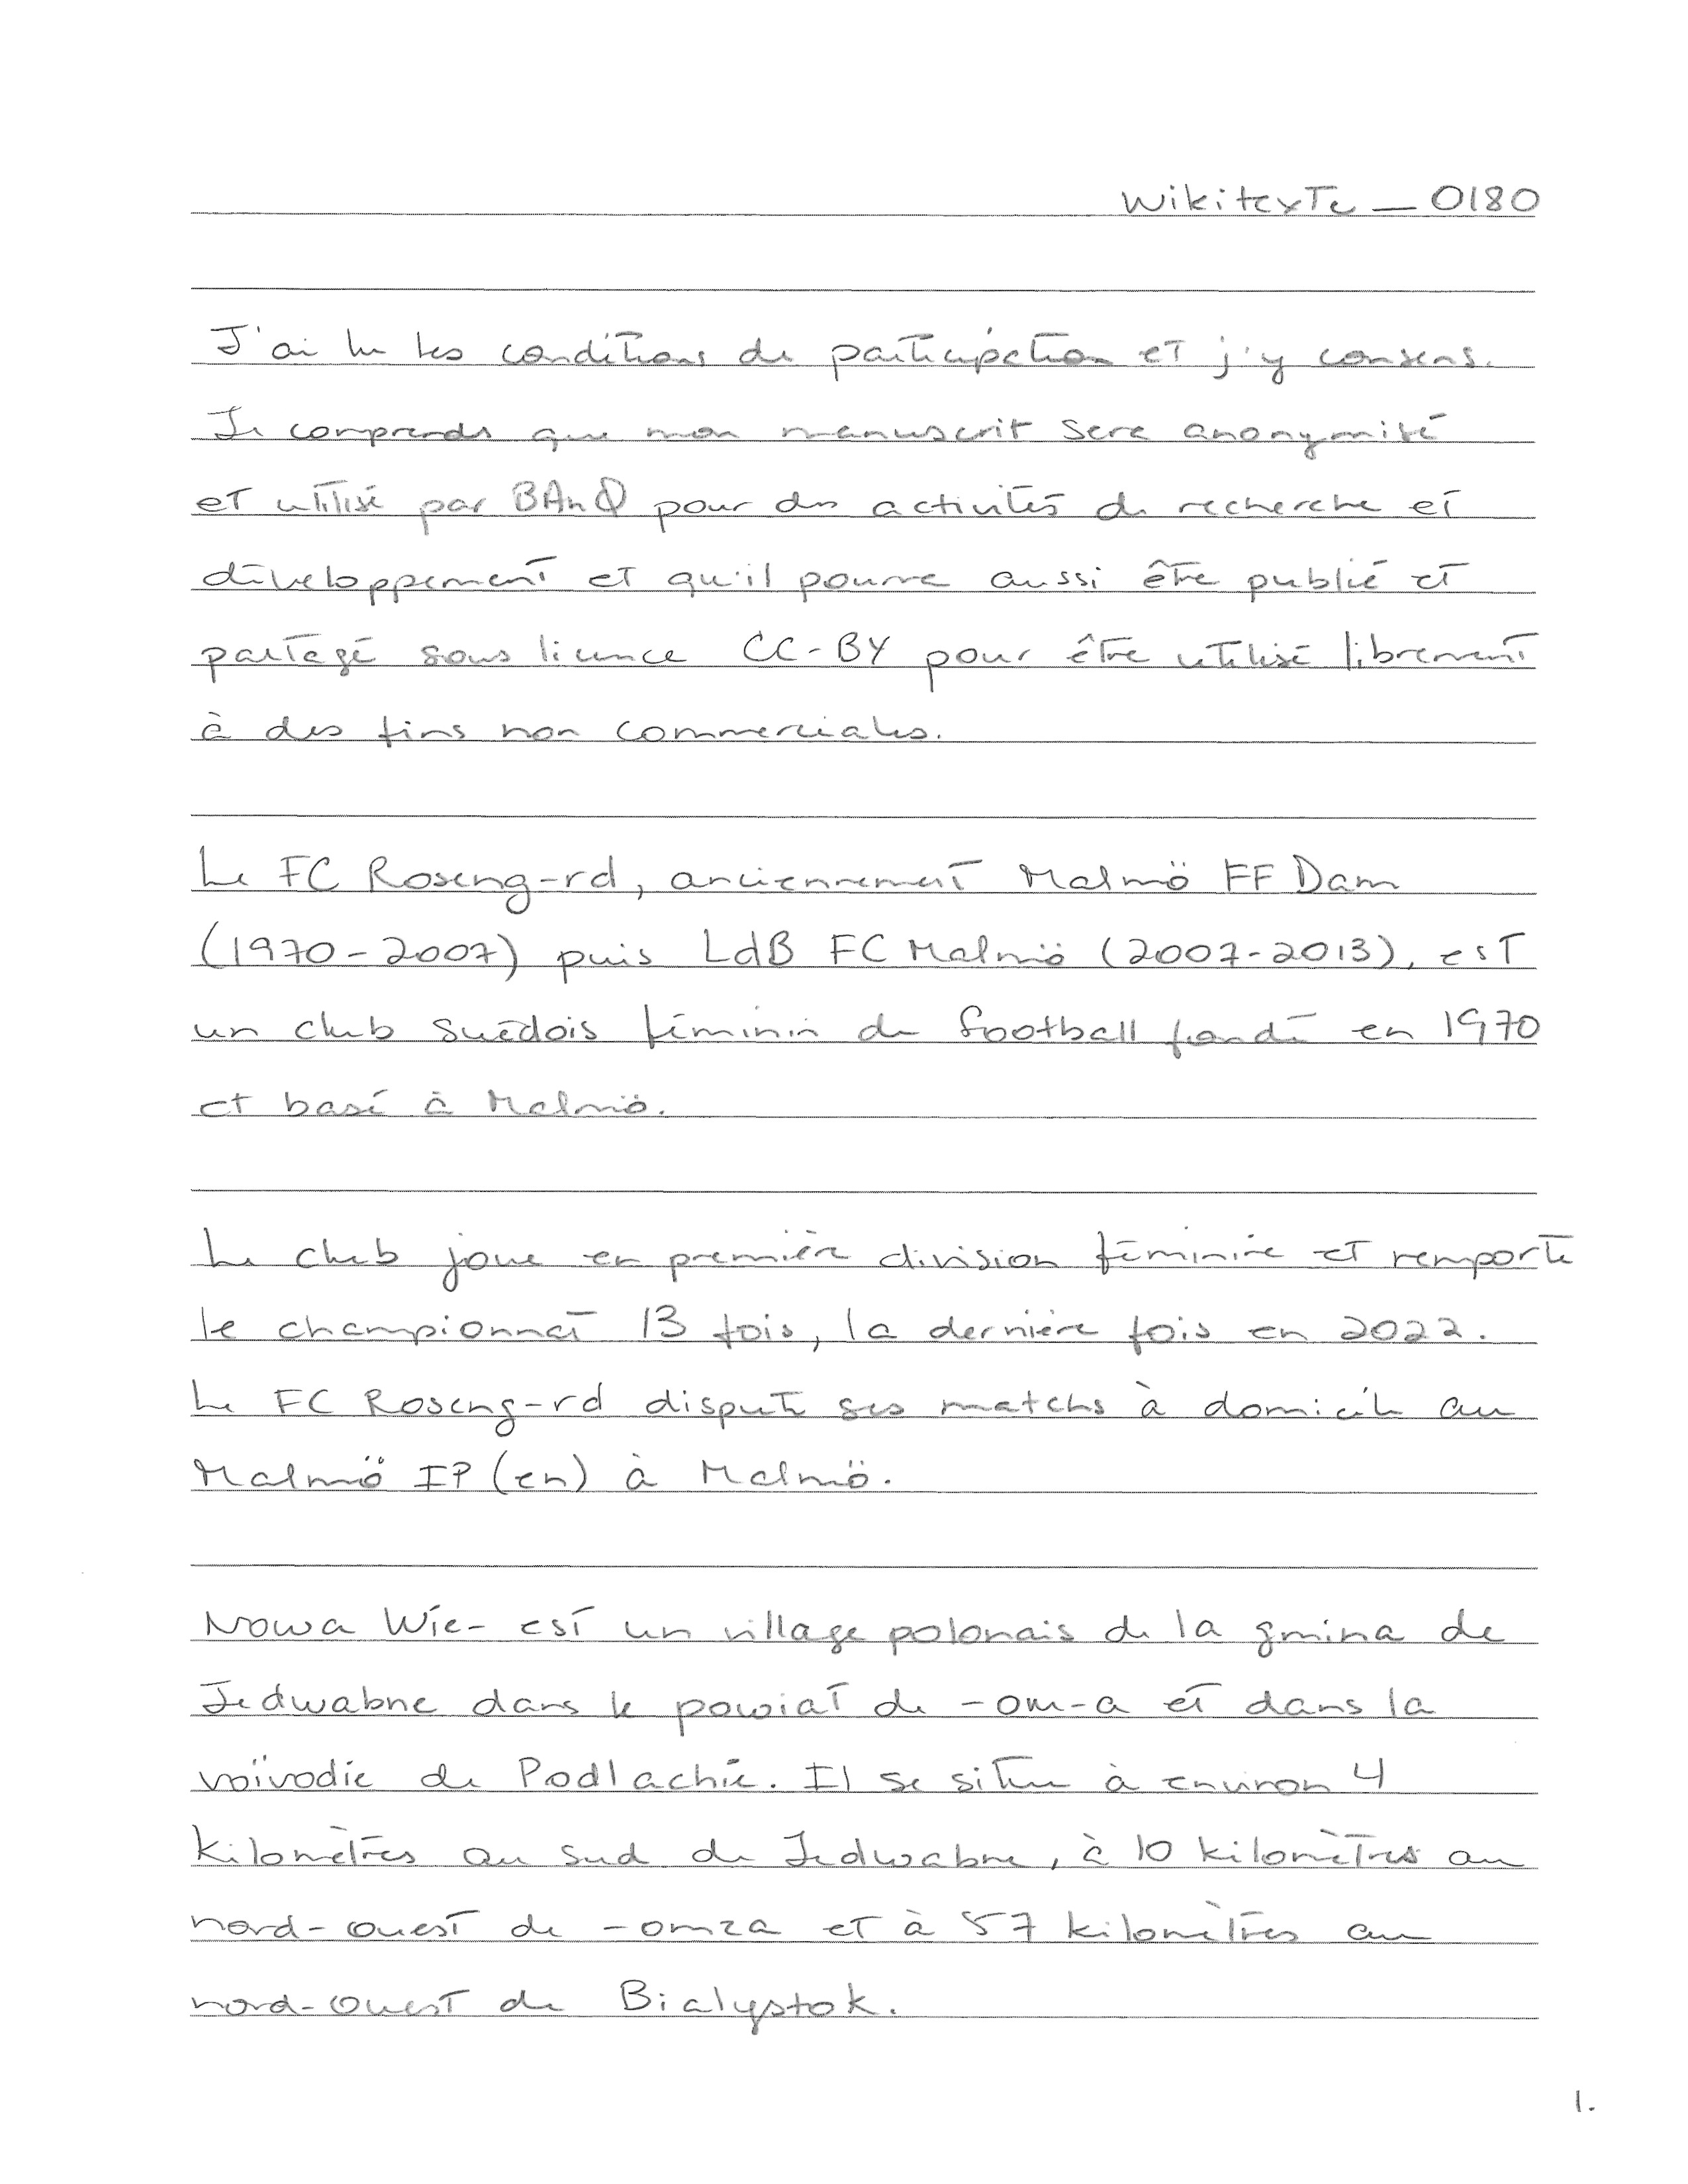 Wikitexte_0180
J'ai lu les conditions de participation et j'y consens.
Je comprends que mon manuscrit sera anonymité
et utilisé par BAnQ pour des activités de recherche et
développement et qu'il pourra aussi être publié et
partagé sous licence CC-BY pour être utilisé librement
à des fins non commerciales.
Le FC Roseng-rd, anciennement Malmö FF Dam
(1970-2007) puis LdB FC Malmö (2007-2013), est
un club suédois féminin de football fondé en 1970
et basé à Malmö.
Le club joue en première division féminine et remporte
le championnat 13 fois, la dernière fois en 2022.
Le FC Roseng-rd dispute ses matchs à domicile au
Malmö IP (en) à Malmö.
Nowa Wie- est un village polonais de la gmina de
Jedwabne dans le powiat de -om-a et dans la
voïvodie de Podlachie. Il se situe à environ 4
kilomètres au sud de Jedwabne, à 10 kilomètres au
nord-ouest de -omza et à 57 kilomètres au
nord-ouest de Bialystok.
1.